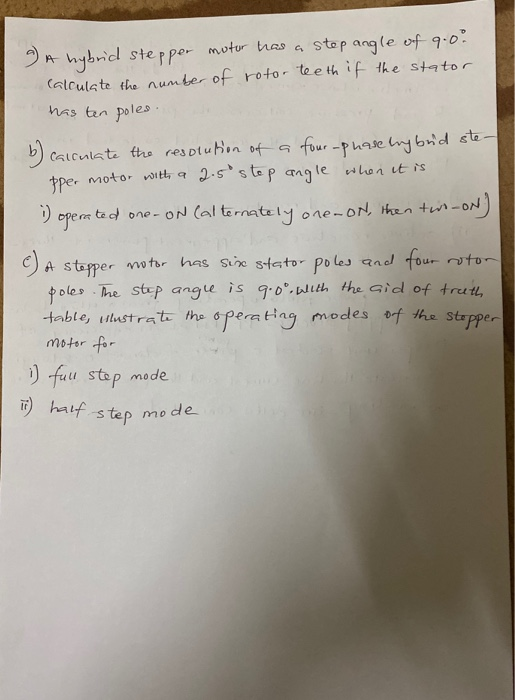 a) A hybrid stepper motor has a step angle of 9.0°.
Calculate the number of rotor teeth if the stator
has ten poles.
b) Calculate the resolution of a four-phase hybrid ste-
pper motor with a 2.5° step angle when it is
i) operated one-ON (alternately one-ON, then two-ON)
c) A stepper motor has six stator poles and four rotor
poles. The step angle is 9.0°. With the aid of truth
table, illustrate the operating modes of the stepper
motor for
i) full step mode
ii) half step mode